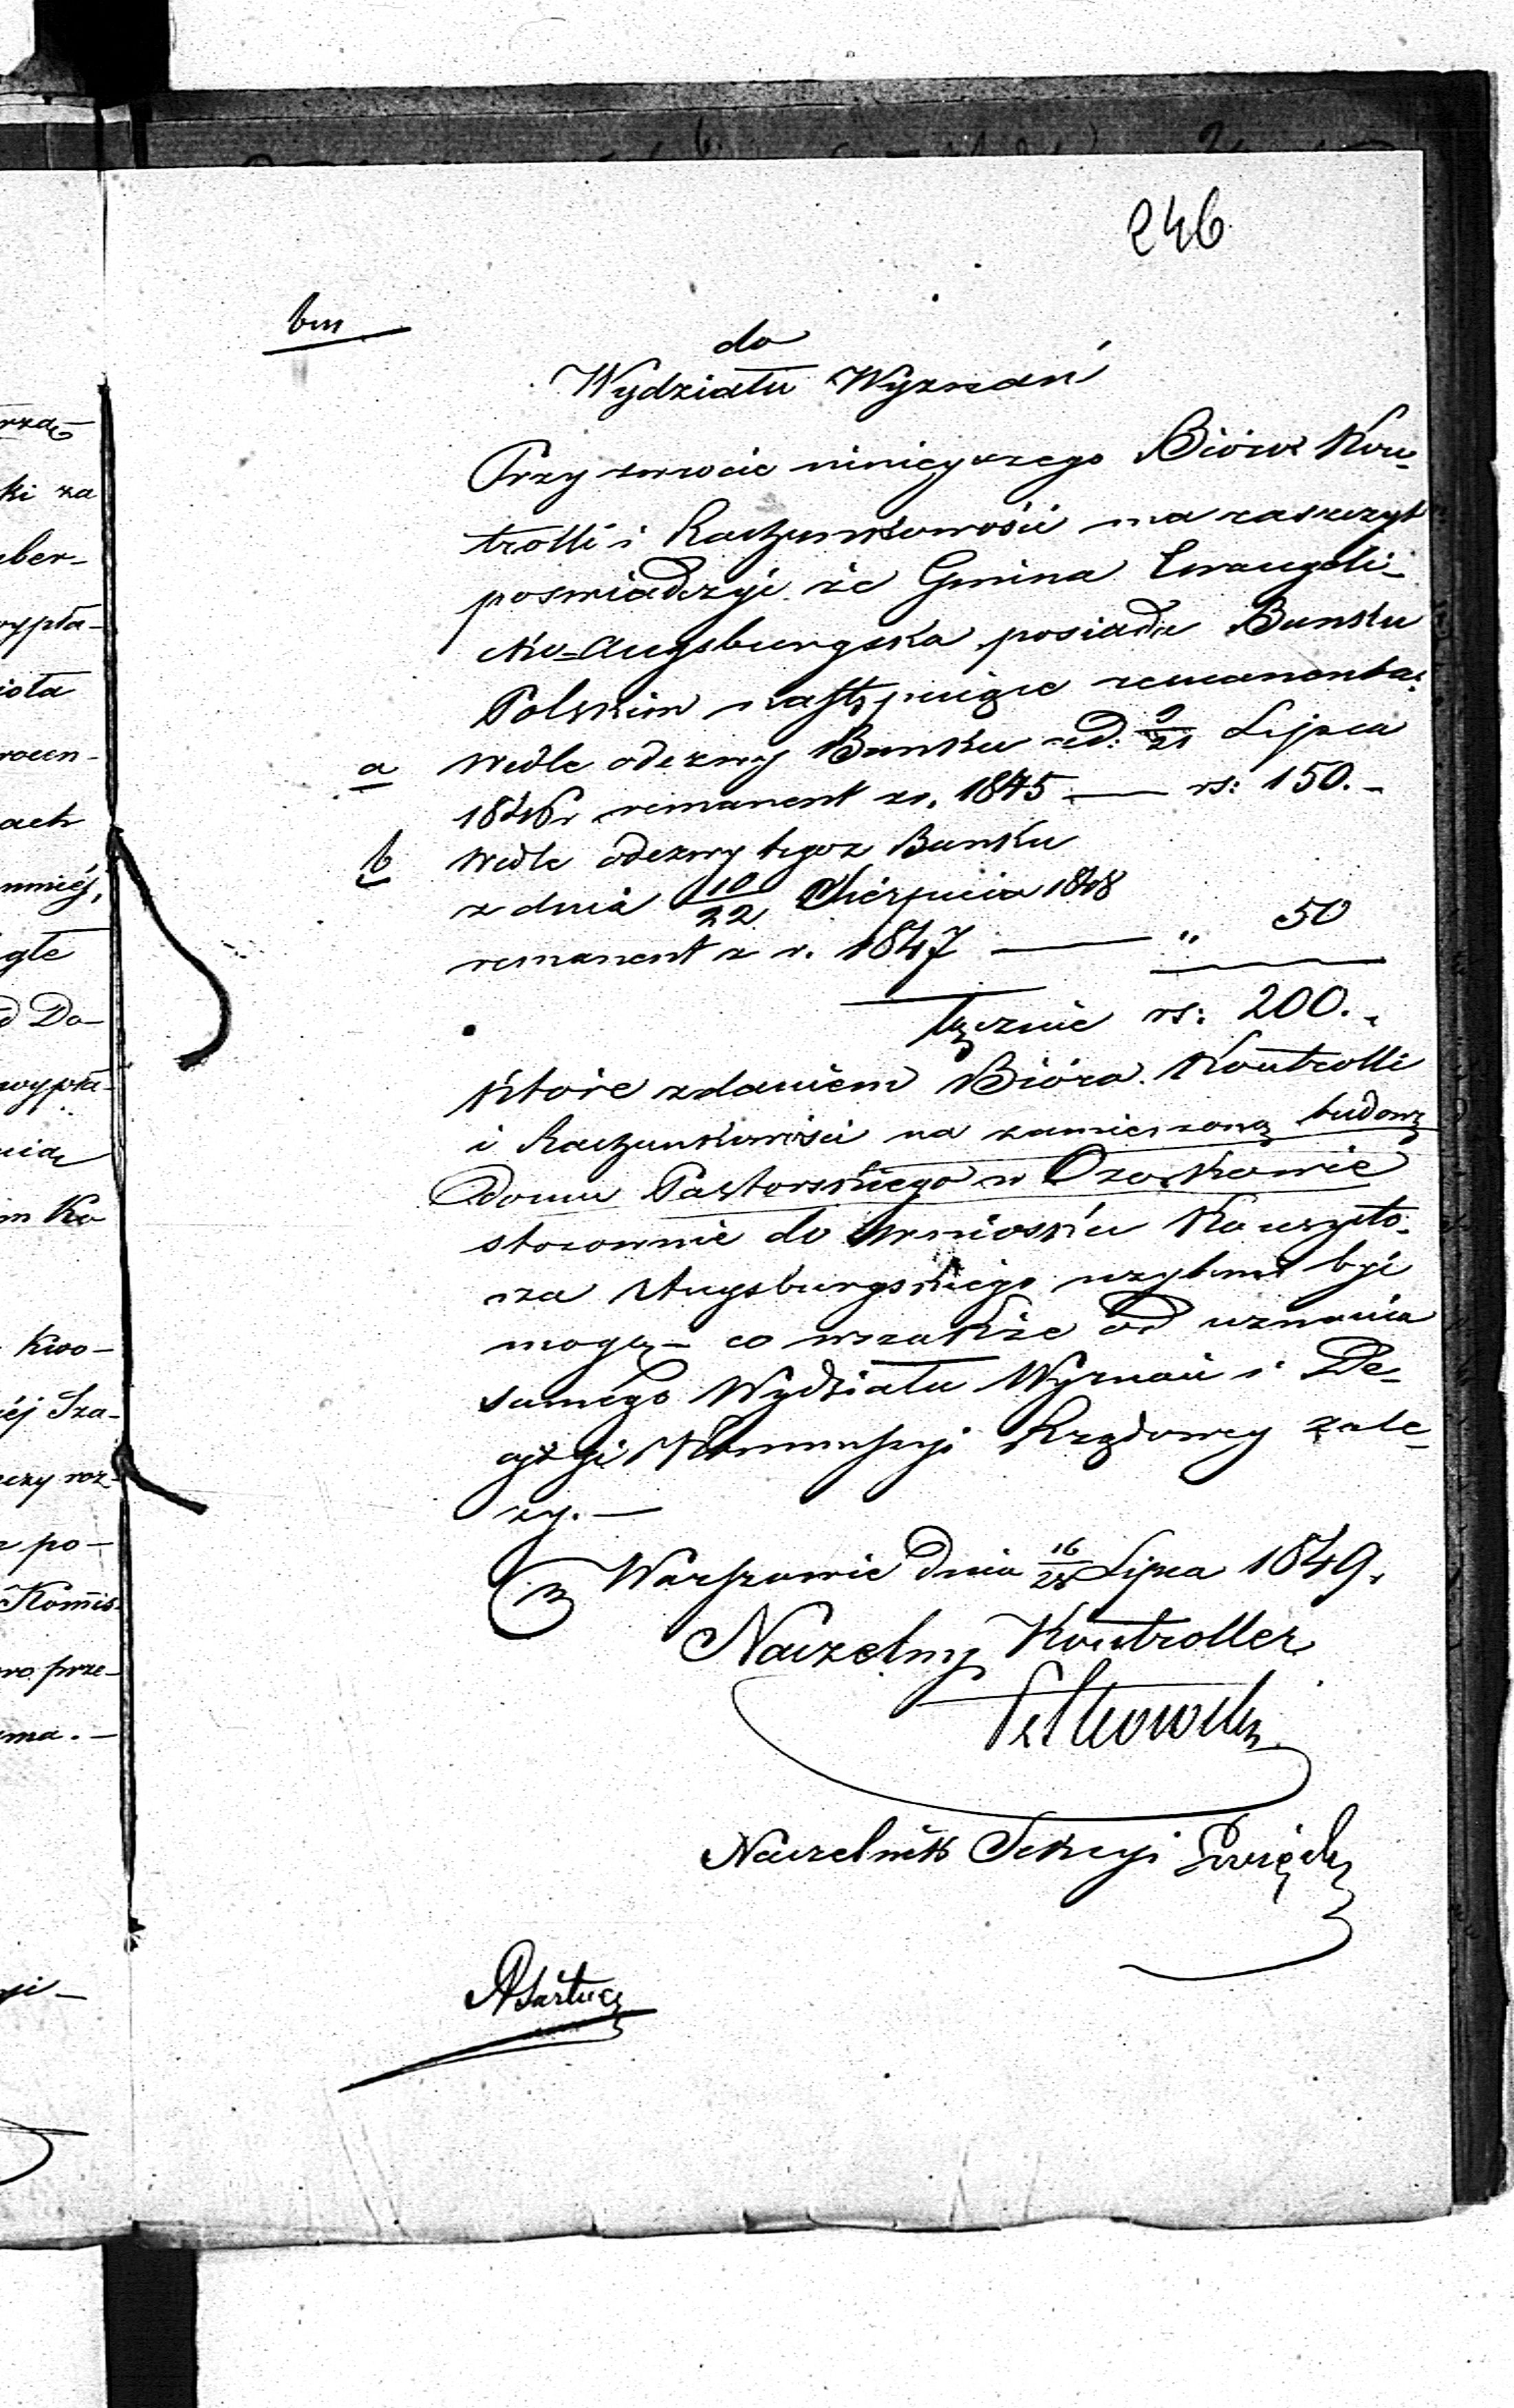 246
bm
do
Wydziału Wyznań
Przy zwrocie ninieyszego Bióro Kon-
trolli i Rachunkowości ma zaszczyt
poswiadczyć że Gmina Ewangeli-
cko=Augsburgska posiada Banku
Polskim następuiące remanenta:
a wedle odezwy Banku z d: 9/21 Lipca
1846 r remanent z r. 1845 — rs: 150. -
b wedle odezwy tegoz Banku
z dnia 10/22 Sierpnia 1848
remanent z r. 1847 — " 50
łącznie rs: 200. -
które zdaniem Bióra Kontrolli
i Rachunkowości na zamierzoną budowę
Domu Pastorskiego w Ozorkowie
stosownie do wniosku Konsysto-
rza Augsburgskiego użytemi być
mogą - co wszakże od uznania
samego Wydziału Wyznań i De-
cyzyi Kommissyi Rządowey zale-
ży. —
w Warszawie dnia 16/28 Lipca 1849.
Naczelny Kontroller
Naczelnik Sekcyi
rzą-
ki za
ber-
wypła-
iota
rocen-
ach
mniéj,
głe
d Do-
wypła-
nia
m Ko
kwo-
iéj Sza-
czy roz-
z po-
Kom̄is
wo prze-
ma. —
yi —